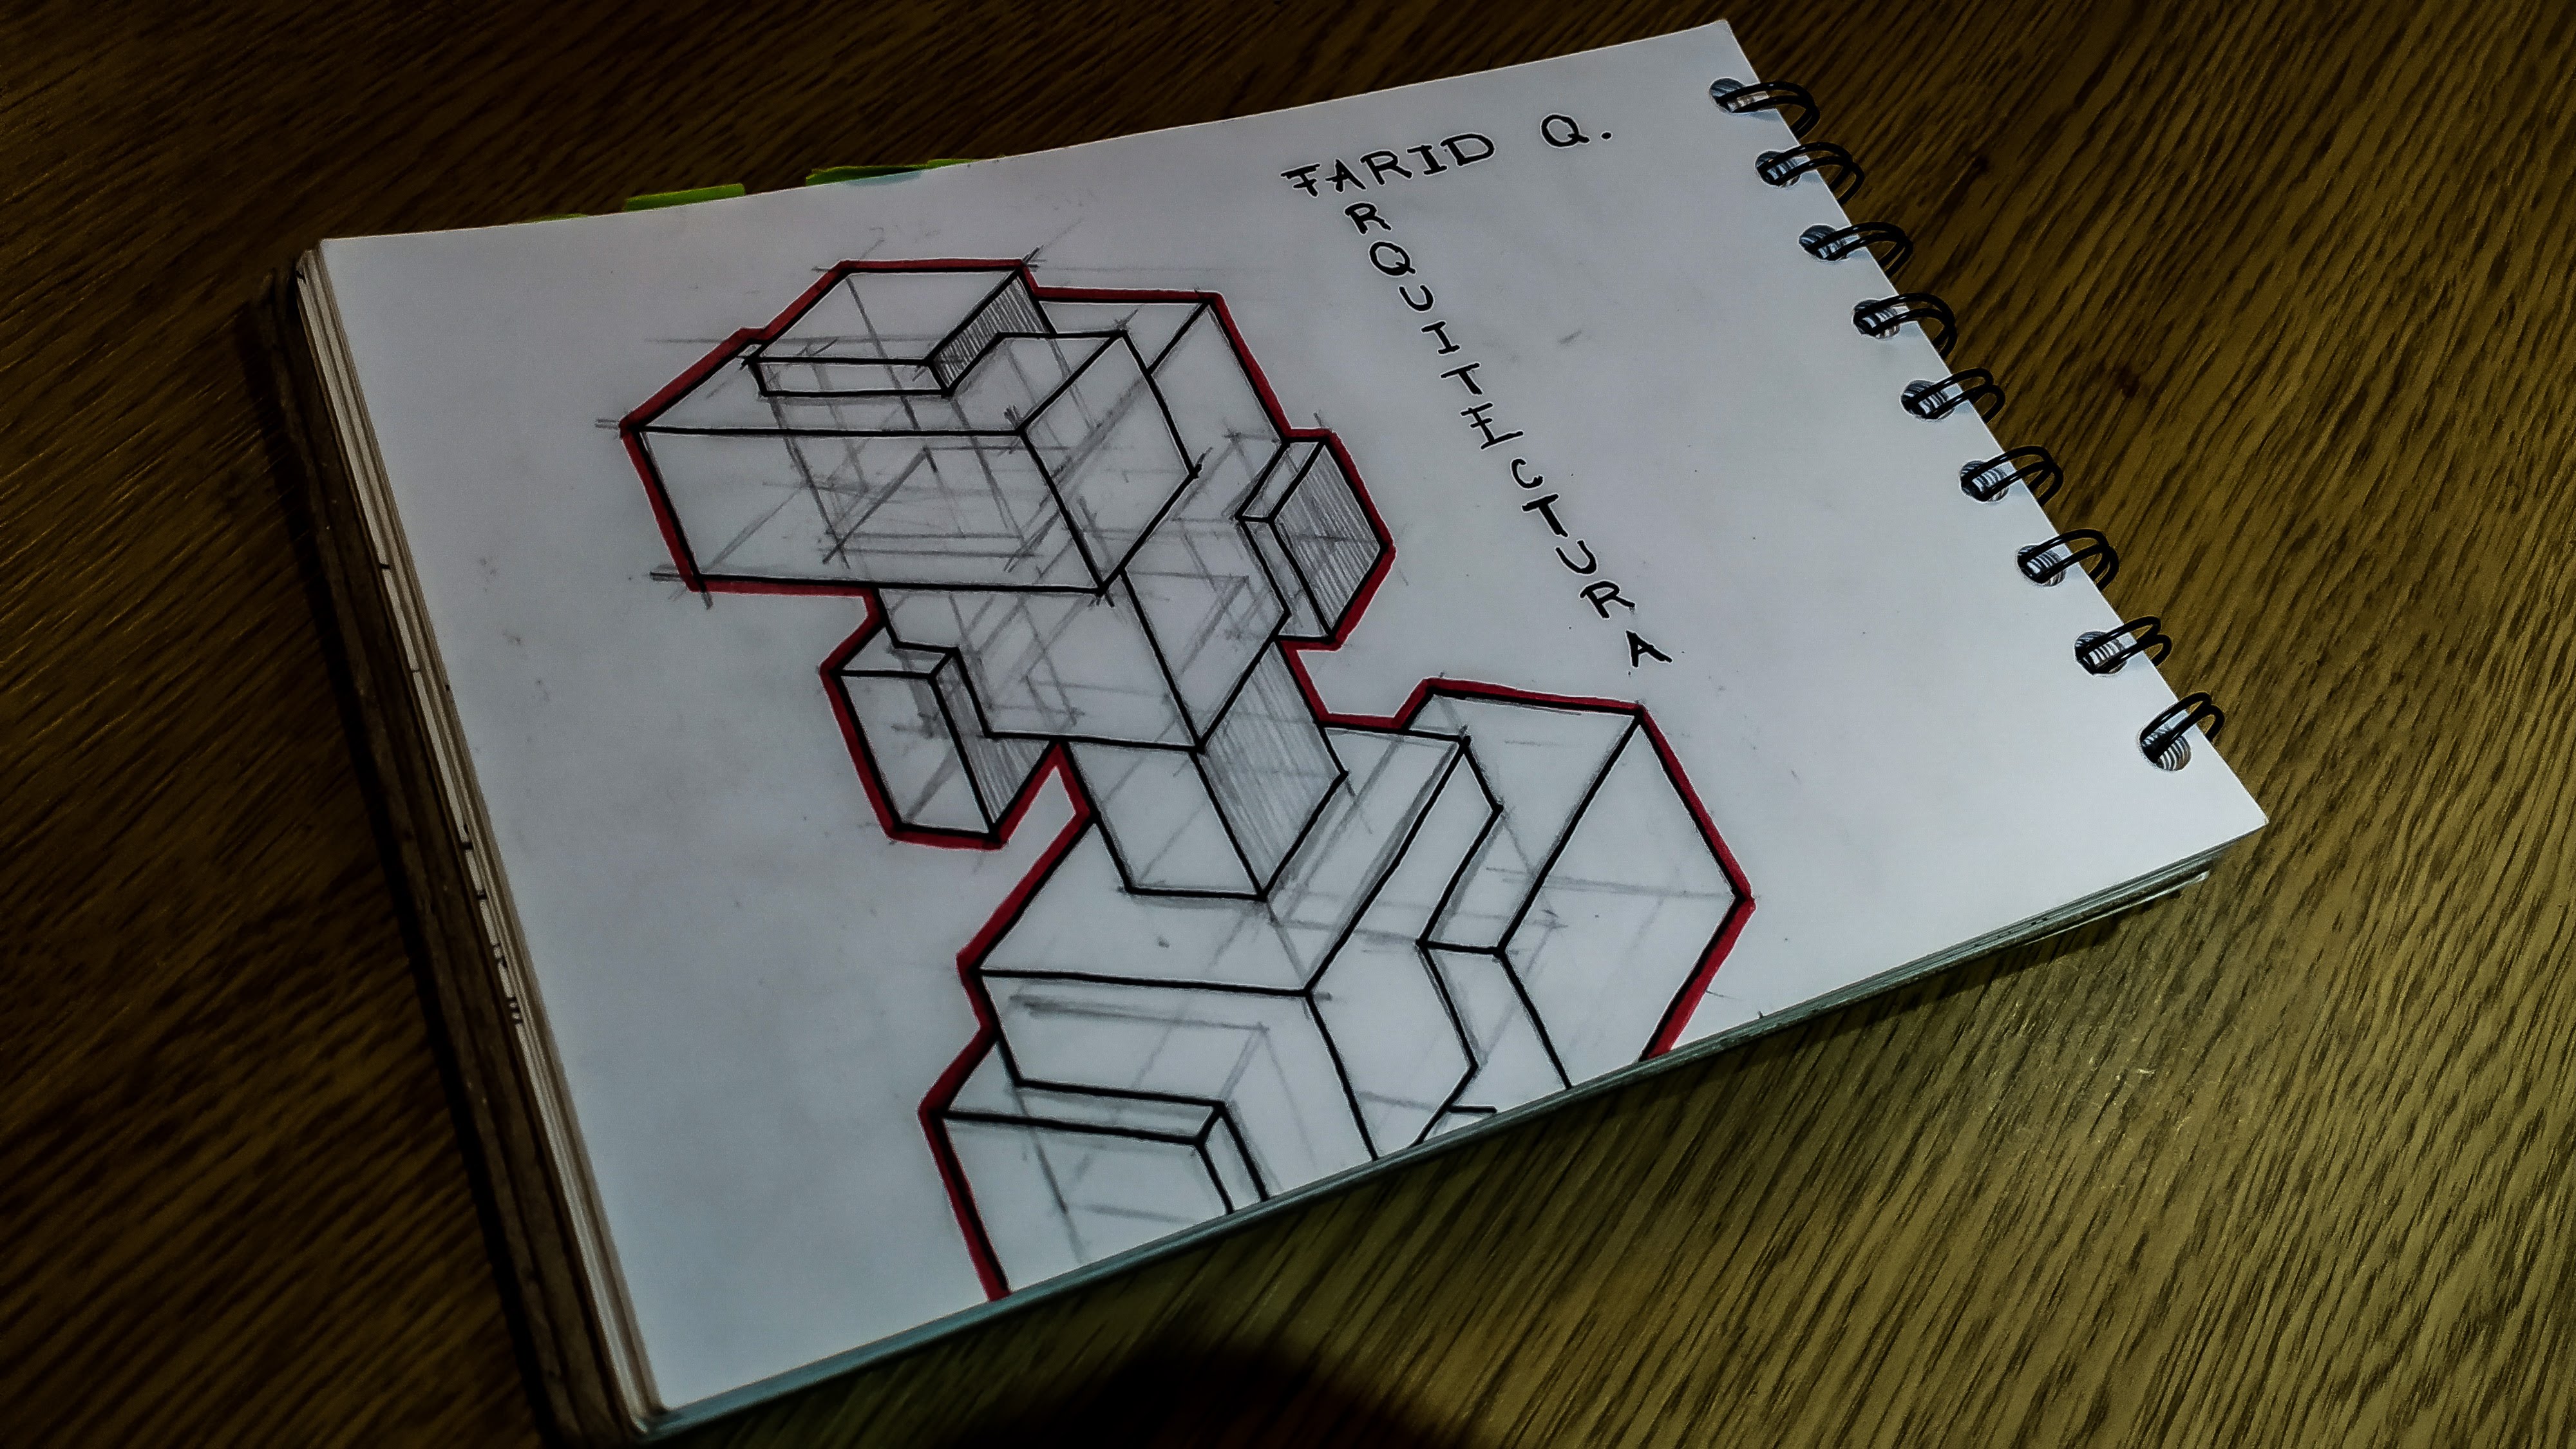 FARID Q.
ARQUITECTURA